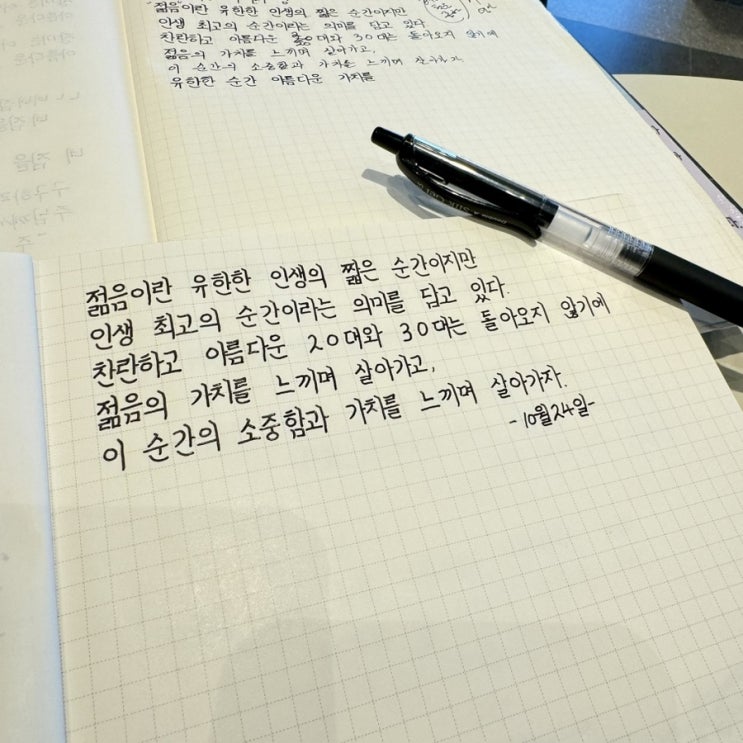 젊음이란 유한한 인생의 짧은 순간이지만
인생 최고의 순간이라는 의미를 담고 있다.
찬란하고 아름다운 20대와 30대는 돌아오지 않기에
젊음의 가치를 느끼며 살아가고,
이 순간의 소중함과 가치를 느끼며 살아가자.
유한한 순간 아름다운 가치를
젊음이란 유한한 인생의 짧은 순간이지만
인생 최고의 순간이라는 의미를 담고 있다.
찬란하고 아름다운 20대와 30대는 돌아오지 않기에
젊음의 가치를 느끼며 살아가고,
이 순간의 소중함과 가치를 느끼며 살아가자.
-10월24일-